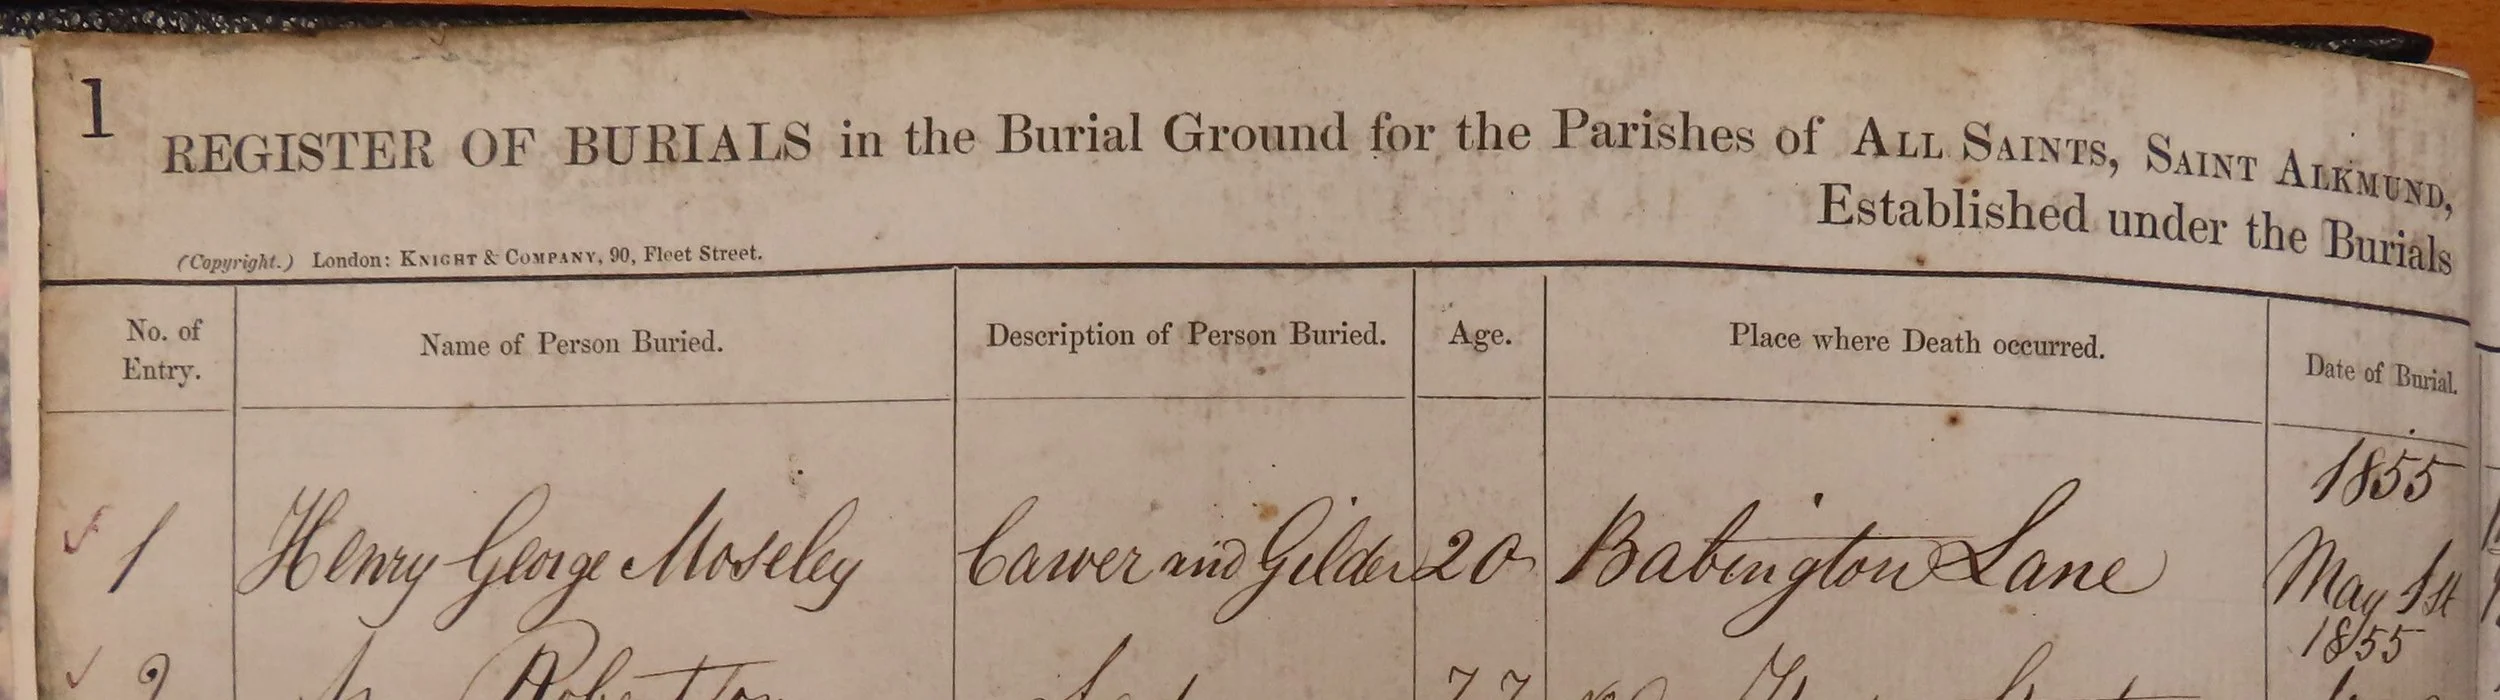 1
REGISTER OF BURIALS in the Burial Ground for the Parishes of ALL SAINTS, SAINT ALKMUND,
Established under the Burials
(Copyright.) London: KNIGHT & COMPANY, 90, Fleet Street.
No. of Entry. Name of Person Buried. Description of Person Buried. Age. Place where Death occurred. Date of Burial.
1855
1 Henry George Moseley Carver and Gilder 20 Babington Lane May 1st
1855
2 77